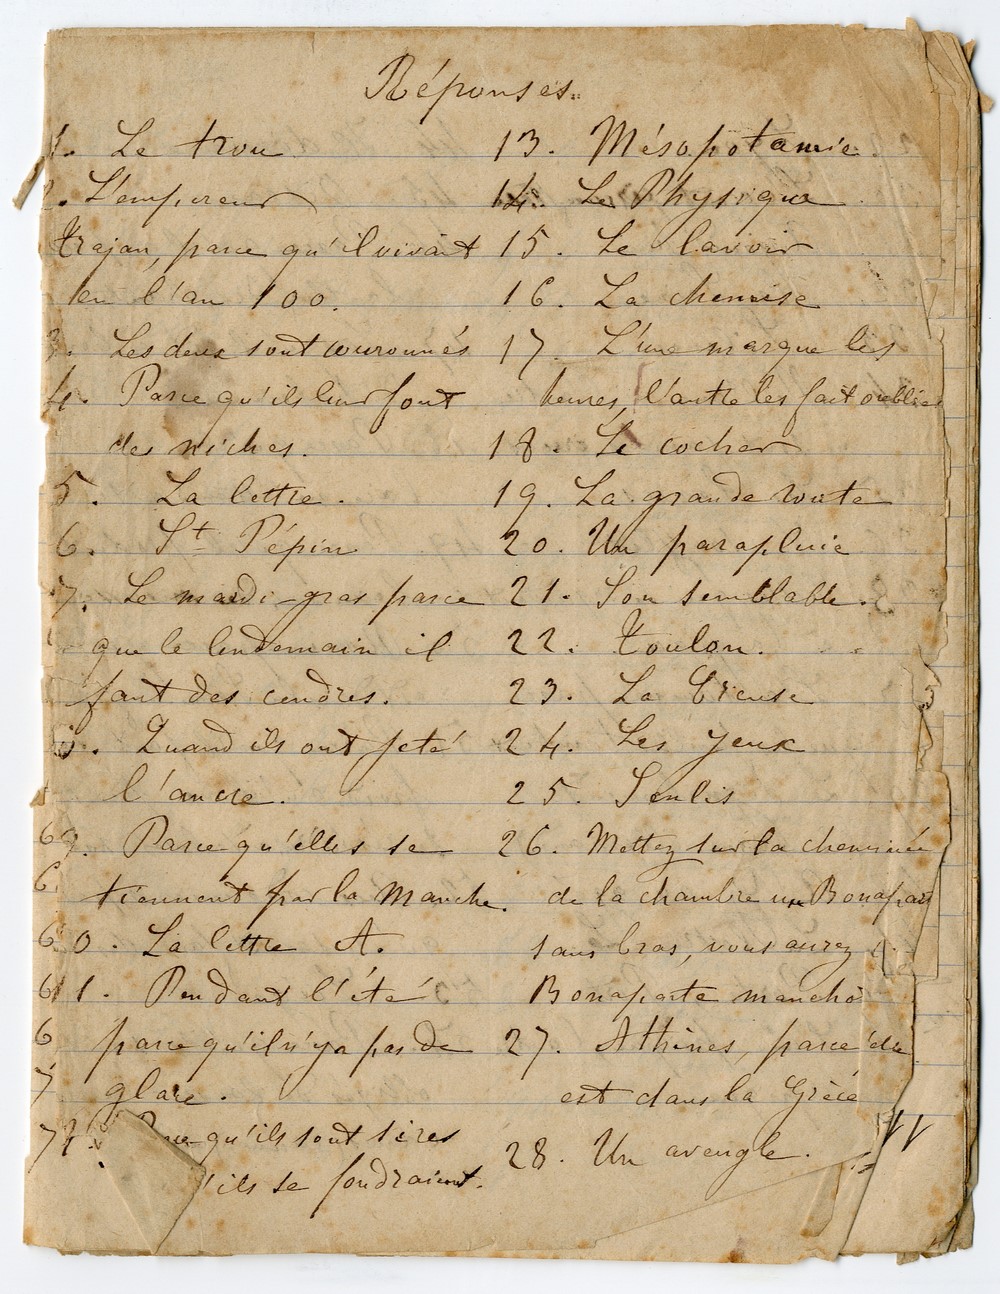 Réponses.
1. Le trou
2. L'empereur
Trajan, parce qu'il vivait
en l'an 100.
3. Les deux sont couronnés
4. Parce qu'ils leur font
des niches.
5. La lettre.
6. St Pépin
7. Le mardi-gras parce
que le lendemain il
faut des cendres.
. Quand ils ont jeté
l'ancre.
9. Parce qu'elles se
tiennent par la Manche.
0. La lettre A.
1. Pendant l'été
parce qu'il n'y a pas de
glace.
qu'ils sont sires
'ils se fondraient.
13. Mésopotamie.
14. Le Physique
15. Le lavoir
16. La chemise
17. L'une marque les
heures, l'autre les fait oublier
18. Le cocher
19. La grande route
20. Un parapluie
21. Son semblable.
22. Toulon.
23. La Creuse
24. Les yeux
25. Senlis
26. Mettez sur la cheminée
de la chambre un Bonapar
sans bras, vous aurez
Bonaparte manchot
27. Athènes, parce
est dans la Grèce
28. Un aveugle.